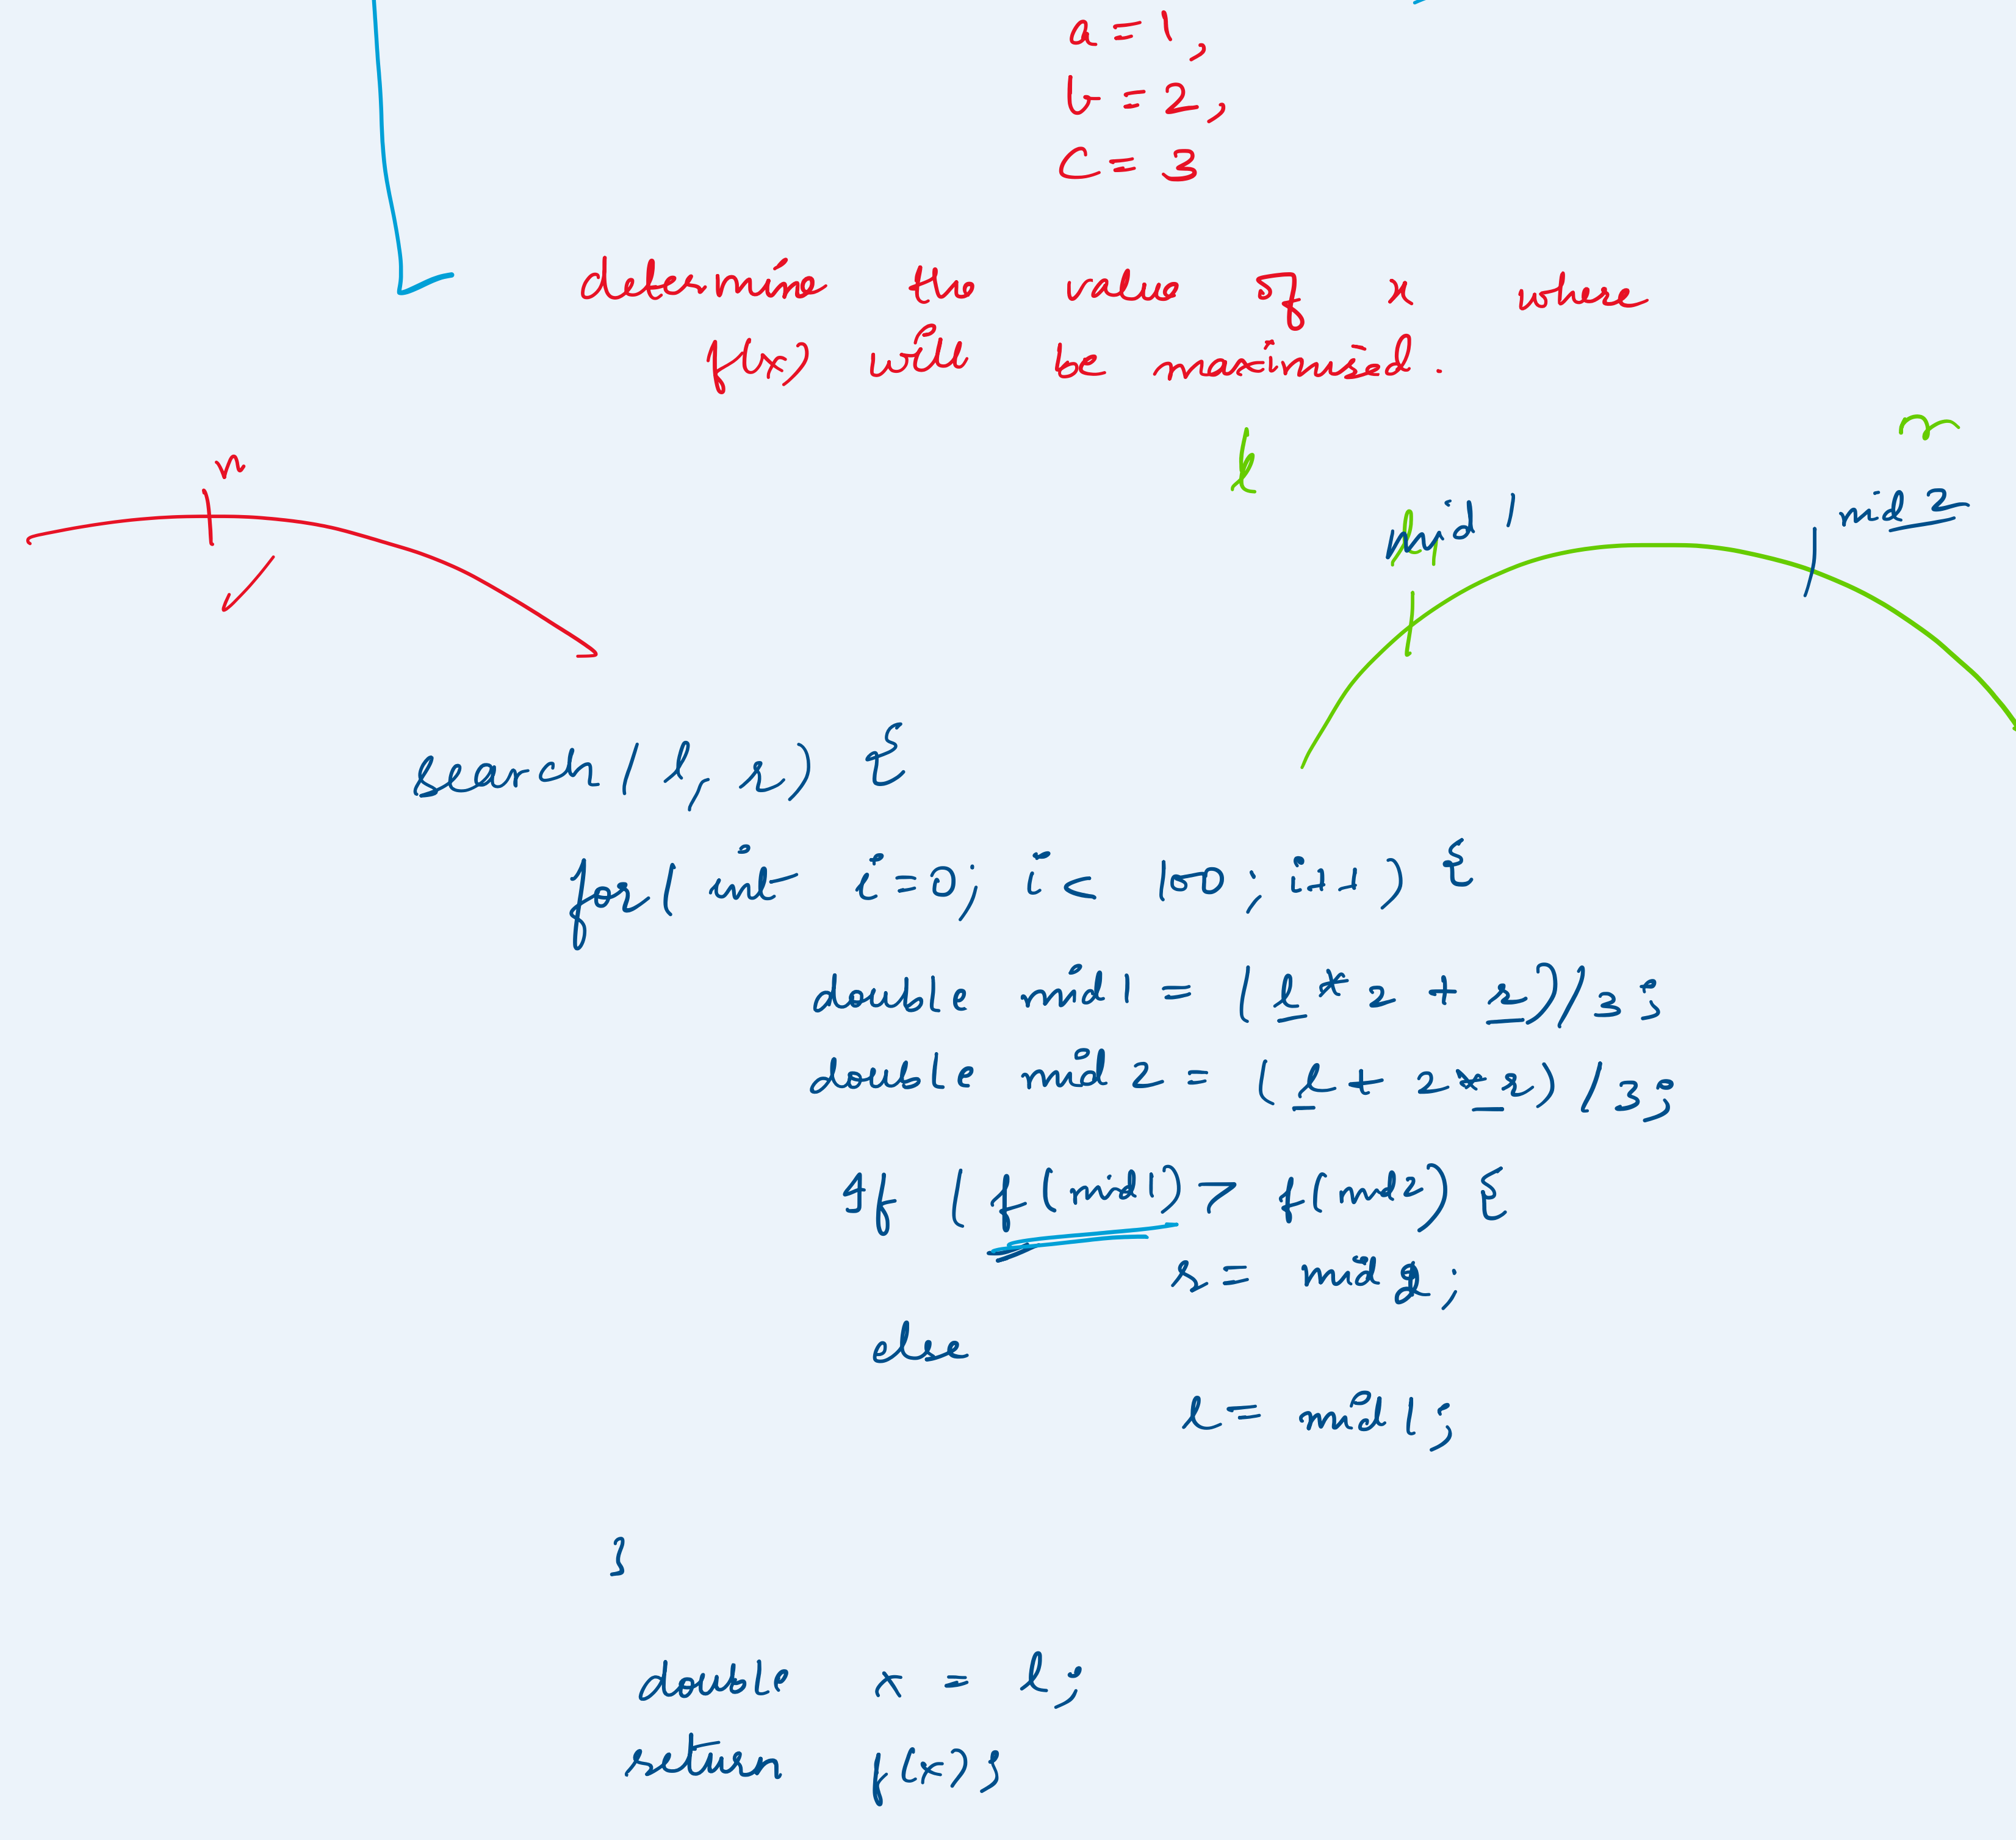 a = 1,
b = 2,
c = 3
determine the value of x where
f(x) will be maximized.
l
r
mid 1
mid 2
search ( l, r) {
for ( int i = 0; i < 100 ; i++ ) {
double mid1 = ( l * 2 + r ) / 3 ;
double mid2 = ( l + 2 * r ) / 3 ;
if ( f(mid1) > f(mid2) {
r = mid2 ;
else
l = mid1 ;
}
double x = l ;
return f(x) ;